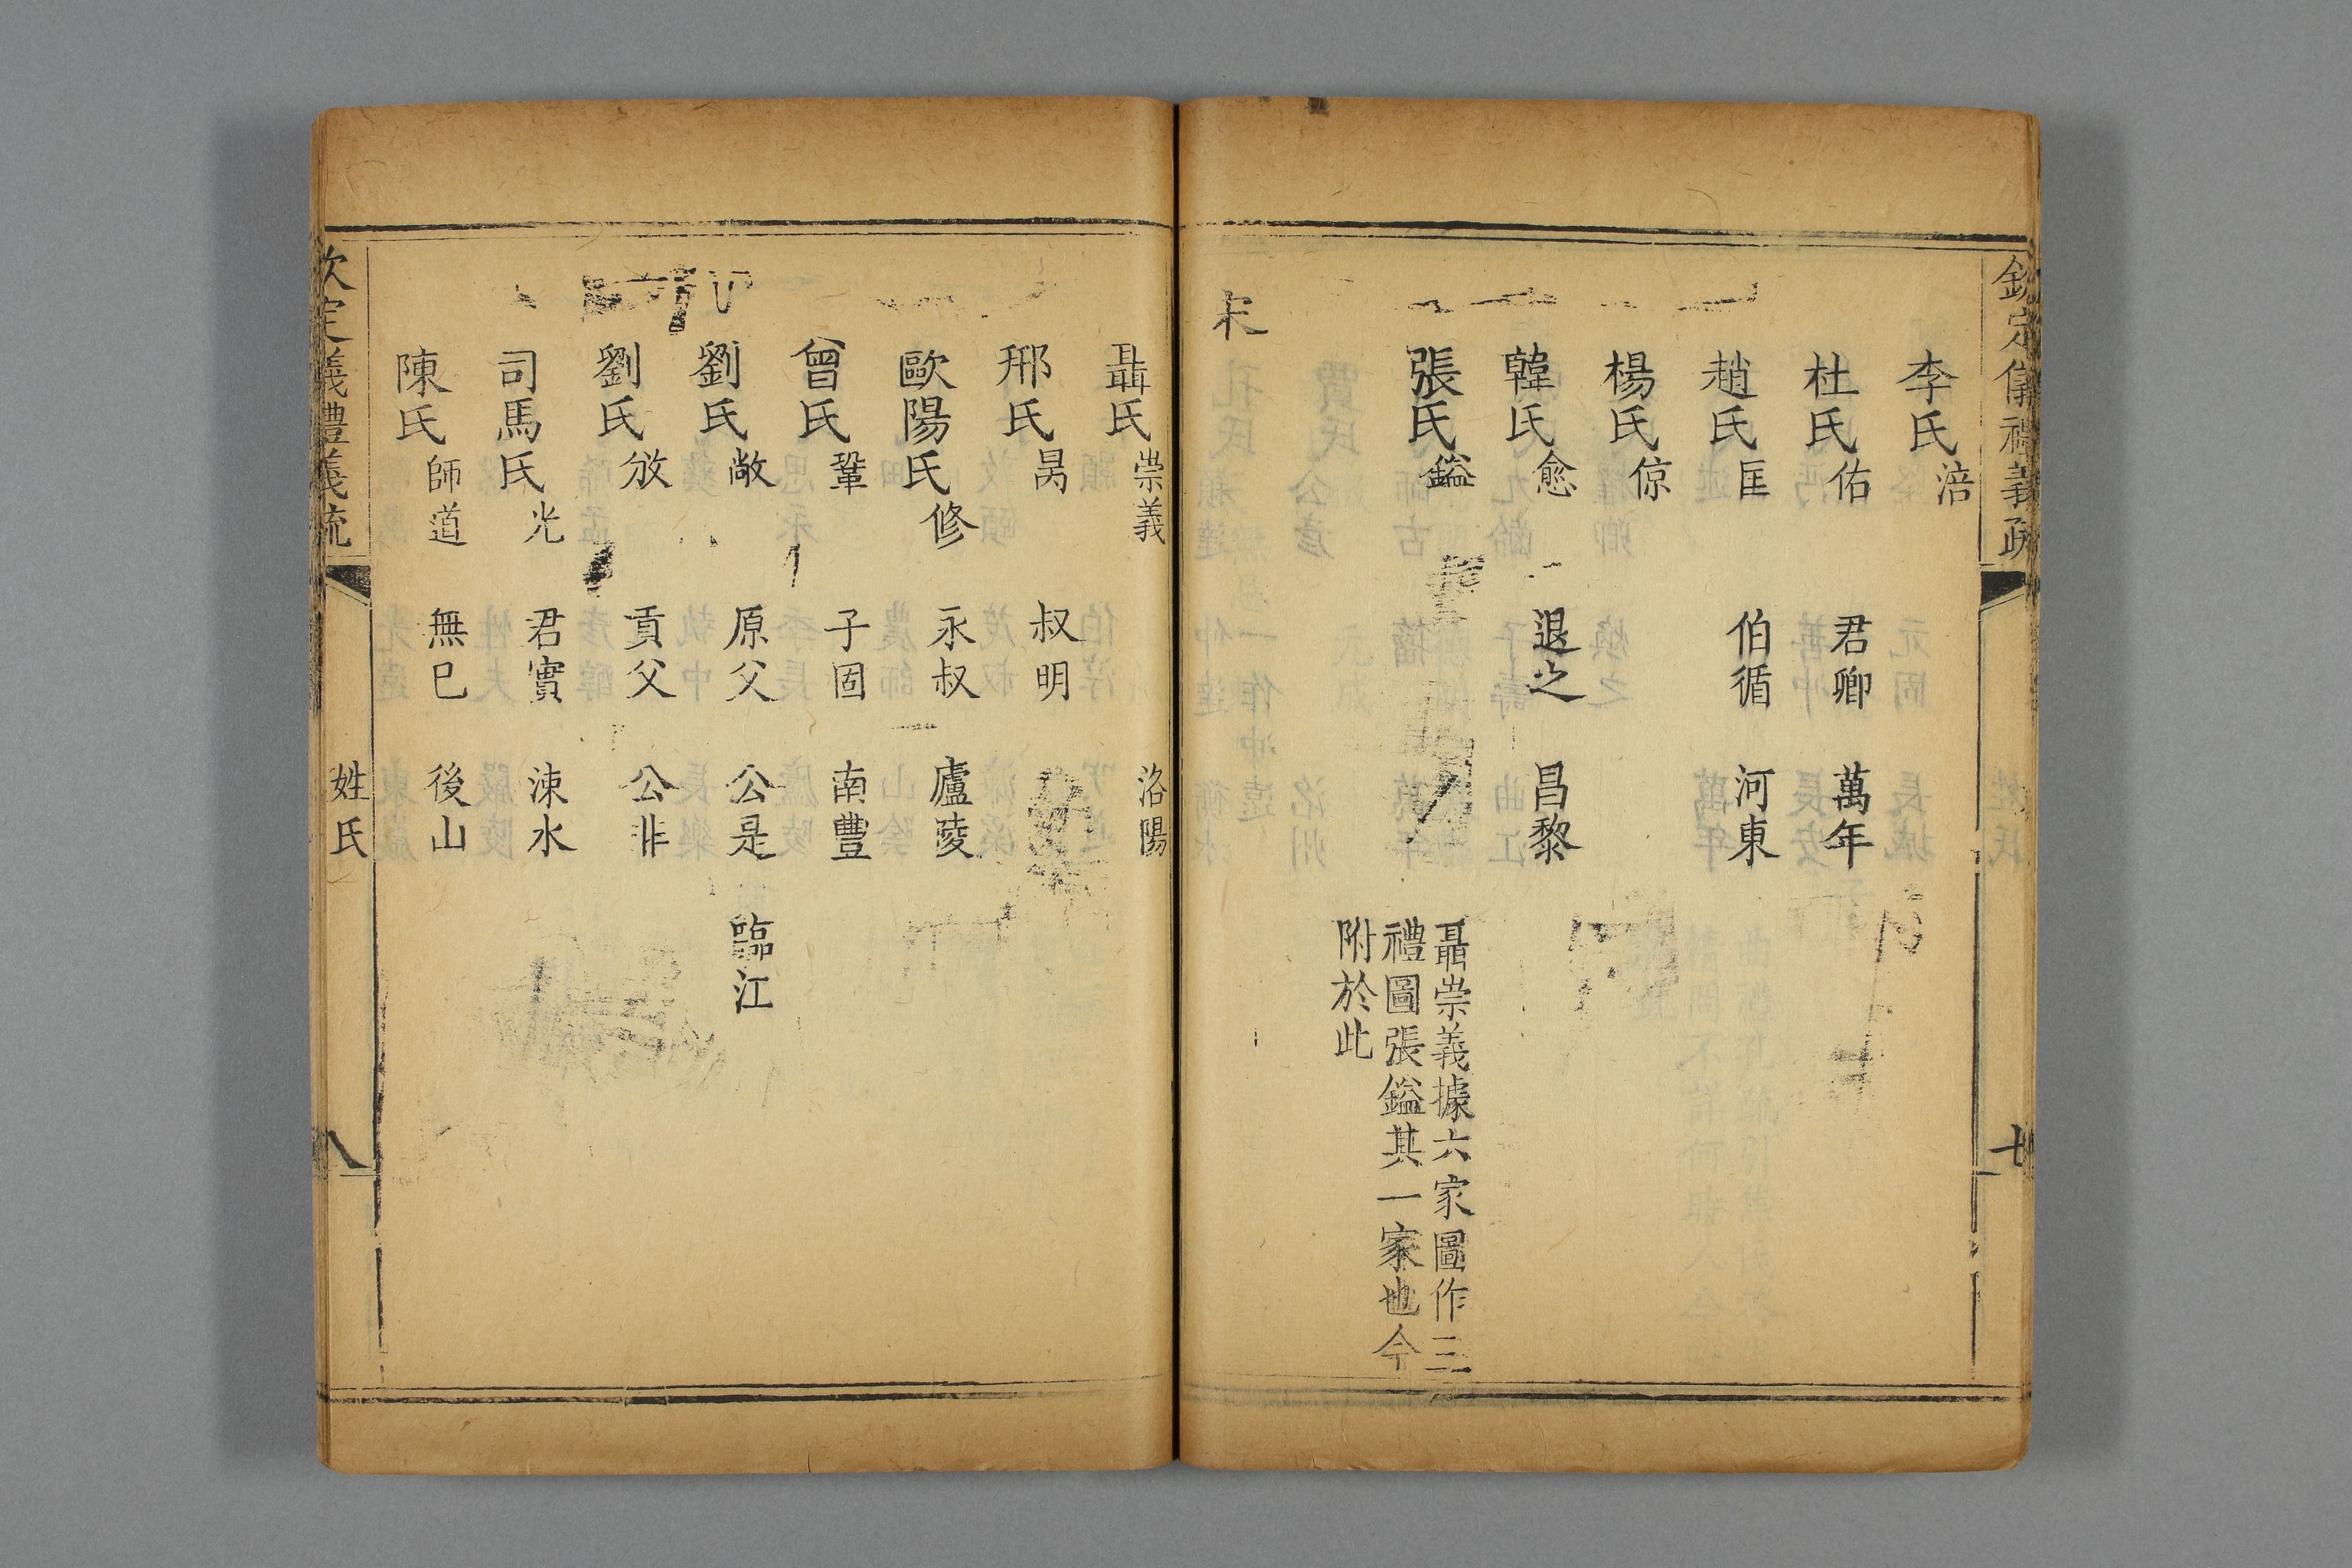 欽定儀禮義疏 姓氏 七
李氏涪
杜氏佑 君卿 萬年
趙氏匡 伯循 河東
楊氏倞
韓氏愈 退之 昌黎
張氏鎰 聶崇義據六家圖作三
禮圖張鎰其一家也今
附於此
宋
聶氏崇義 洛陽
邢氏昺 叔明
歐陽氏修 永叔 廬陵
曾氏鞏 子固 南豐
劉氏敞 原父 公是 臨江
劉氏攽 貢父 公非
司馬氏光 君實 涑水
陳氏師道 無已 後山
欽定義禮義疏 姓氏 八